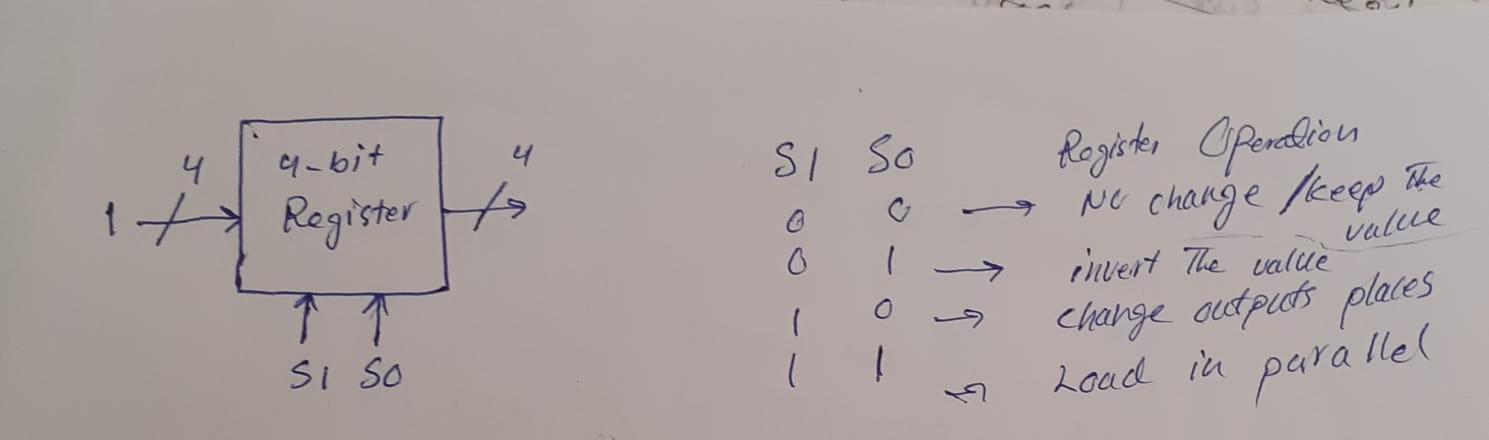 4
4-bit
4
1
Register
S1 S0
S1 S0 Register Operation
0 0 → No change /keep The
value
0 1 → invert The value
1 0 → change outputs places
1 1 → Load in parallel